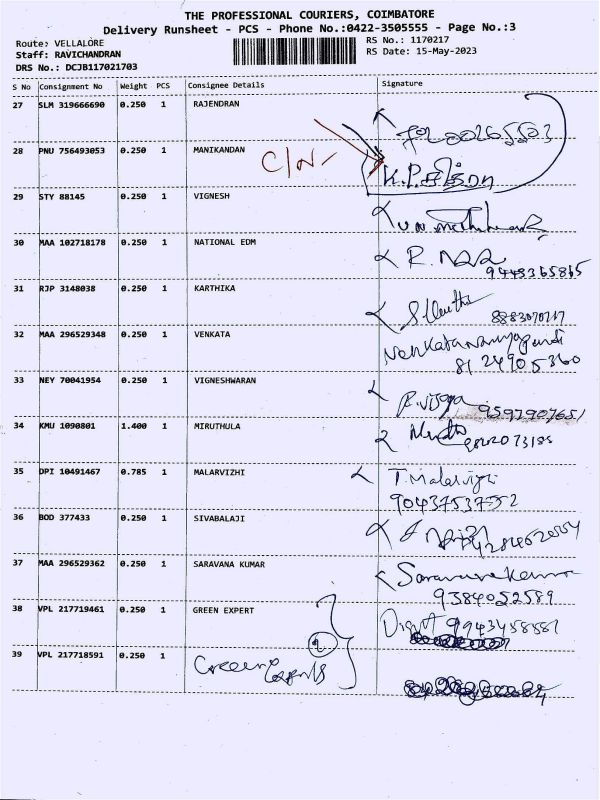 THE PROFESSIONAL COURIERS, COIMBATORE
Delivery Runsheet - PCS - Phone No.:0422-3505555 - Page No.:3
Route: VELLALORE
RS No.: 1170217
Staff: RAVICHANDRAN
RS Date: 15-May-2023
DRS No.: DCJB117021703
S No Consignment No Weight PCS Consignee Details Signature
27 SLM 319666690 0.250 1 RAJENDRAN
28 PNU 756493053 0.250 1 MANIKANDAN
29 STY 88145 0.250 1 VIGNESH
30 MAA 102718178 0.250 1 NATIONAL EDM
9443365865
31 RJP 3148038 0.250 1 KARTHIKA
32 MAA 296529348 0.250 1 VENKATA
81 24905360
33 NEY 70041954 0.250 1 VIGNESHWARAN
9597907651
34 KMU 1090801 1.400 1 MIRUTHULA
35 DPI 10491467 0.785 1 MALARVIZHI T. Malarvizhi
36 BOD 377433 0.250 1 SIVABALAJI
37 MAA 296529362 0.250 1 SARAVANA KUMAR Saravana Kumar
9384052589
38 VPL 217719461 0.250 1 GREEN EXPERT
39 VPL 217718591 0.250 1 Green